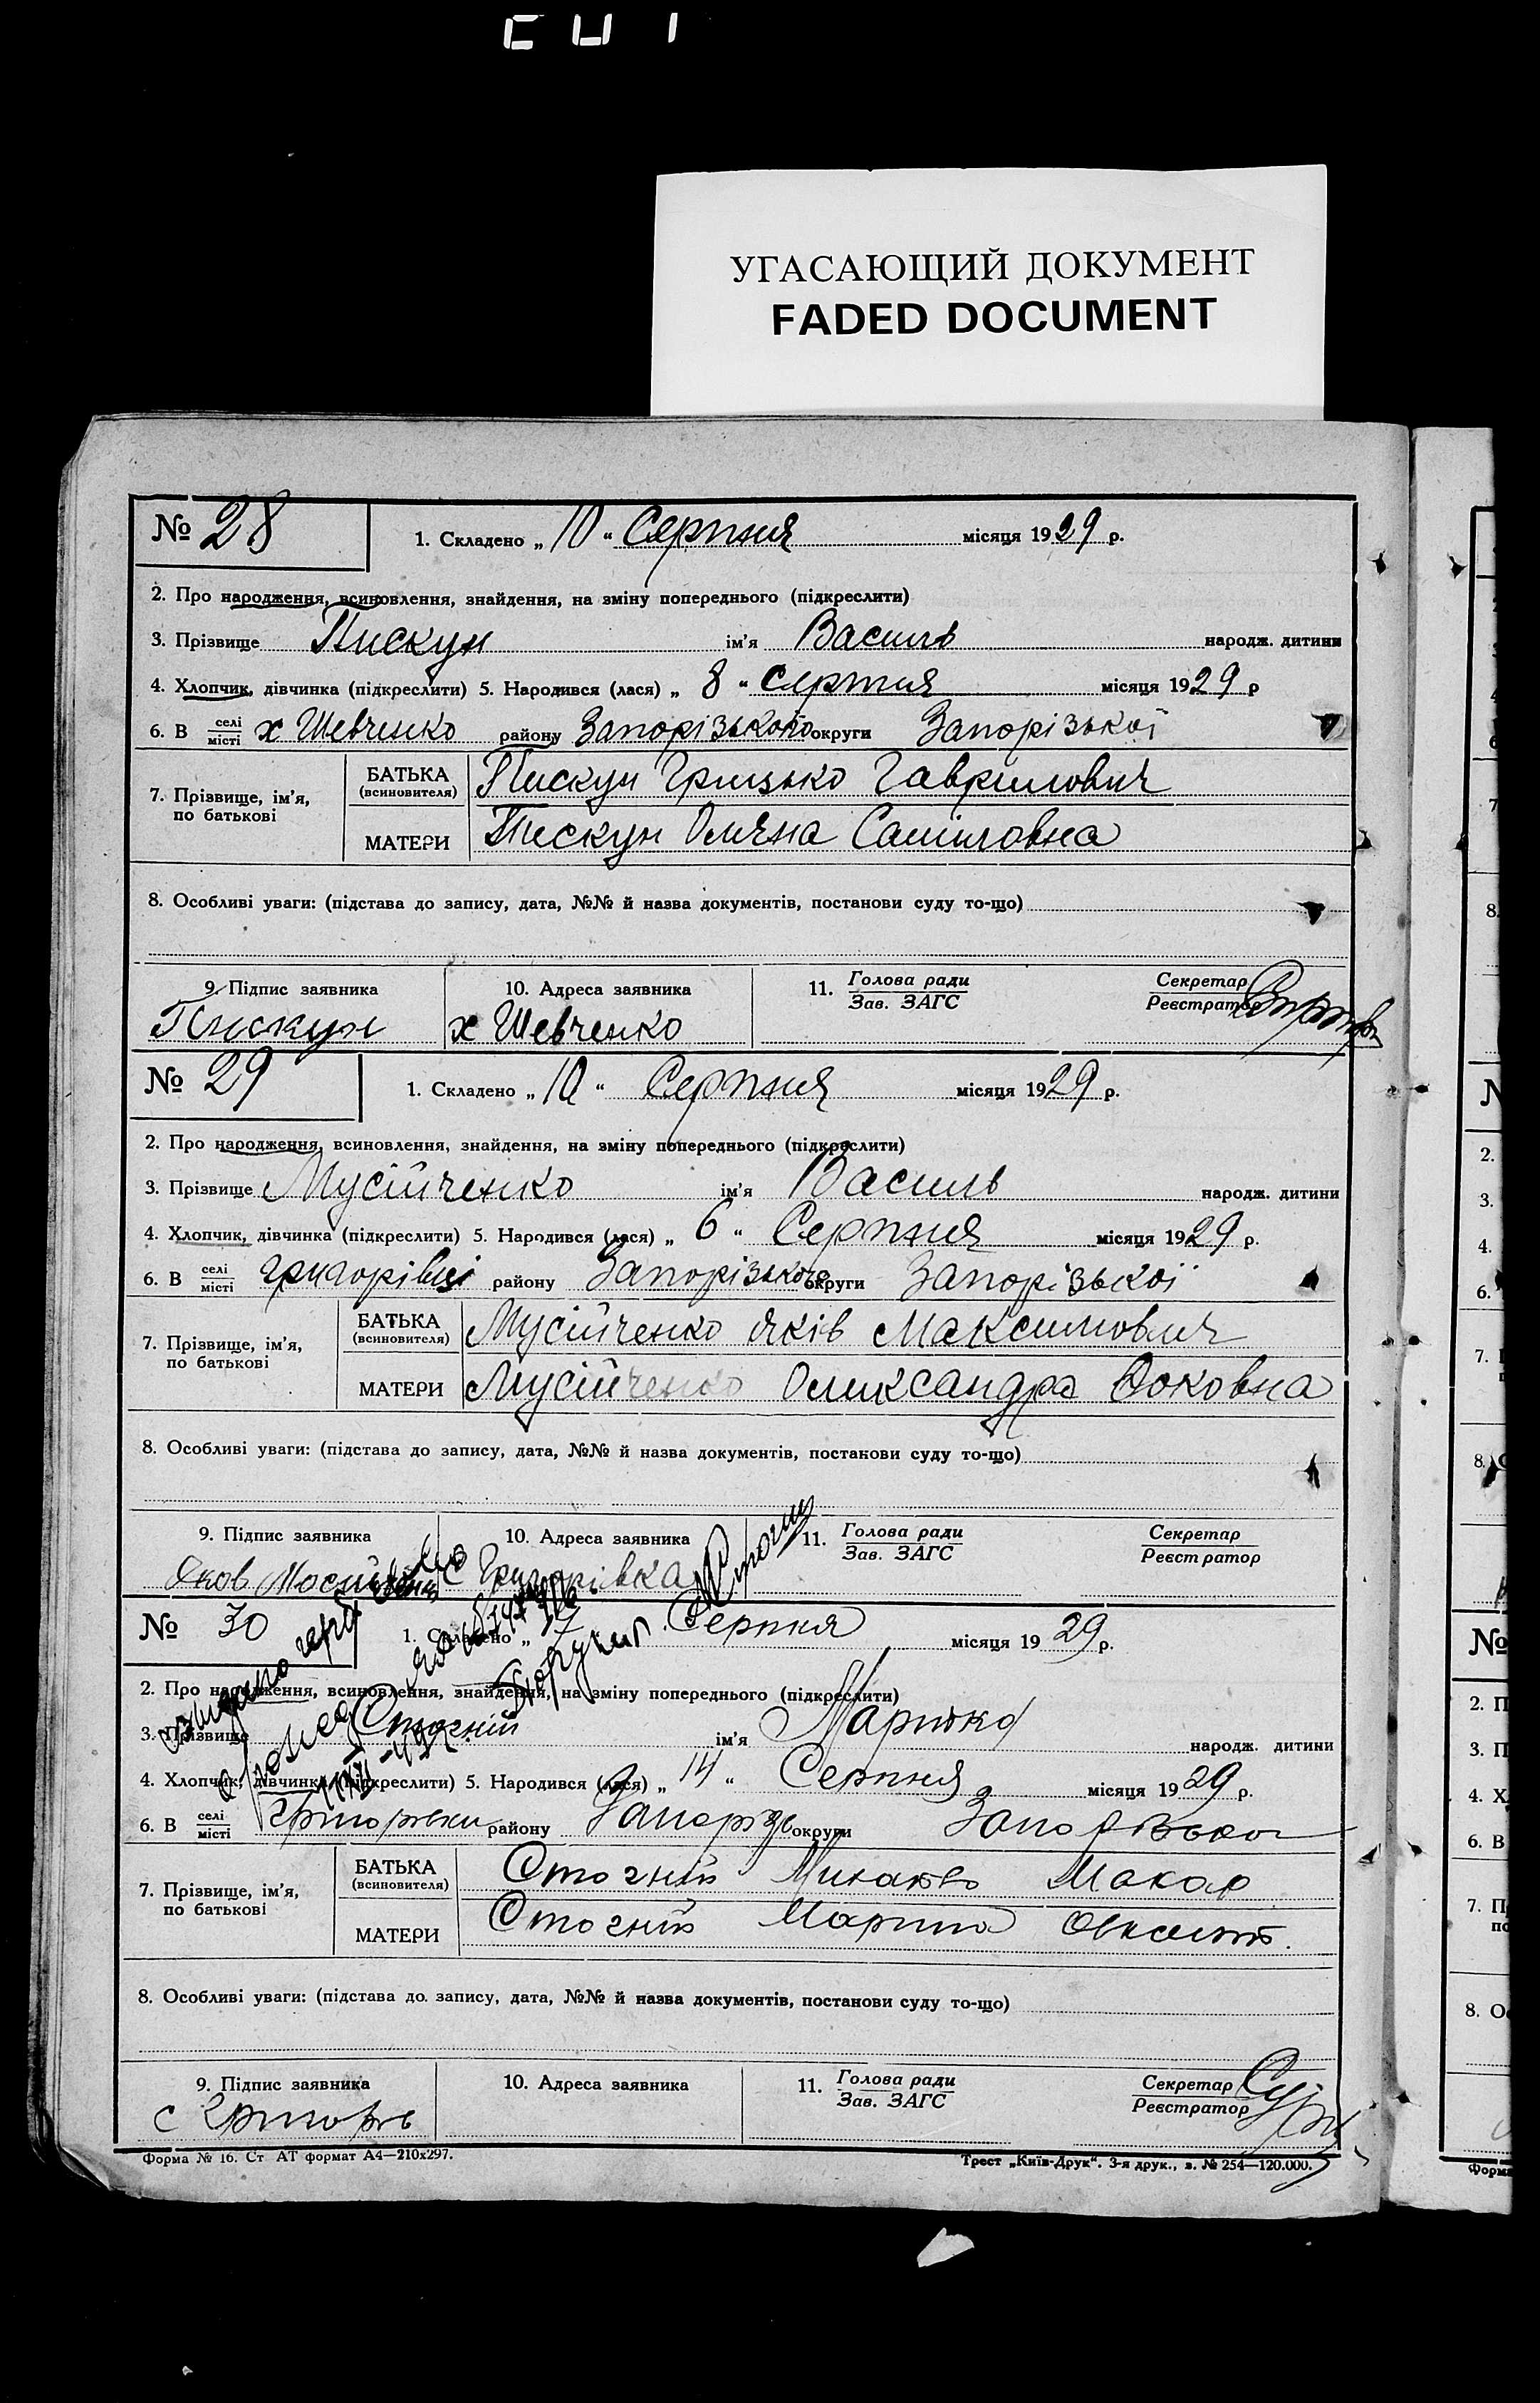 УГАСАЮЩИЙ ДОКУМЕНТ
FADED DOCUMENT
№ 28 1. Складено „ 10 “ Серпня місяця 1929 р.
2. Про народження, всиновлення, знайдення, на зміну попереднього (підкреслити)
3. Прізвище Пискун ім'я Василь народж. дитини
4. Хлопчик, дівчинка (підкреслити) 5. Народився (лася) „ 8 “ серпня місяця 1929 р
6. В селі місті х Шевченко району Запорізького округи Запорізької
7. Прізвище, ім'я, по батькові БАТЬКА (всиновителя) Пискун Грицько Гаврилович
МАТЕРИ Пискун Оляна Самійловна
8. Особливі уваги: (підстава до запису, дата, №№ й назва документів, постанови суду то-що)
9. Підпис заявника 10. Адреса заявника 11. Голова ради Зав. ЗАГС Секретар Реєстратор
Пискун х Шевченко
№ 29 1. Складено „ 10 “ Серпня місяця 1929 р.
2. Про народження, всиновлення, знайдення, на зміну попереднього (підкреслити)
3. Прізвище Мусійченко ім'я Василь народж. дитини
4. Хлопчик, дівчинка (підкреслити) 5. Народився (лася) „ 6 “ Серпня місяця 1929 р.
6. В селі місті григорівці району Запорізького округи Запорізької
7. Прізвище, ім'я, по батькові БАТЬКА (всиновителя) Мусійченко Яків Максимович
МАТЕРИ Мусійченко Олександра
8. Особливі уваги: (підстава до запису, дата, №№ й назва документів, постанови суду то-що)
9. Підпис заявника 10. Адреса заявника 11. Голова ради Зав. ЗАГС Секретар Реєстратор
Яков с Григорівка
№ 30 1. Складено „ 17 Серпня місяця 1929 р.
2. Про народження, всиновлення, знайдення, на зміну попереднього (підкреслити)
3. Прізвище Стогній ім'я народж. дитини
4. Хлопчик, дівчинка (підкреслити) 5. Народився (лася) „ 14 “ Серпня місяця 1929 р.
6. В селі місті району округи
7. Прізвище, ім'я, по батькові БАТЬКА (всиновителя) Стогній Макар
МАТЕРИ Стогній
8. Особливі уваги: (підстава до запису, дата, №№ й назва документів, постанови суду то-що)
9. Підпис заявника 10. Адреса заявника 11. Голова ради Зав. ЗАГС Секретар Реєстратор
Форма № 16. Ст АТ формат А4—210х297. Трест „Київ-Друк“. 3-я друк., з. № 254—120.000.